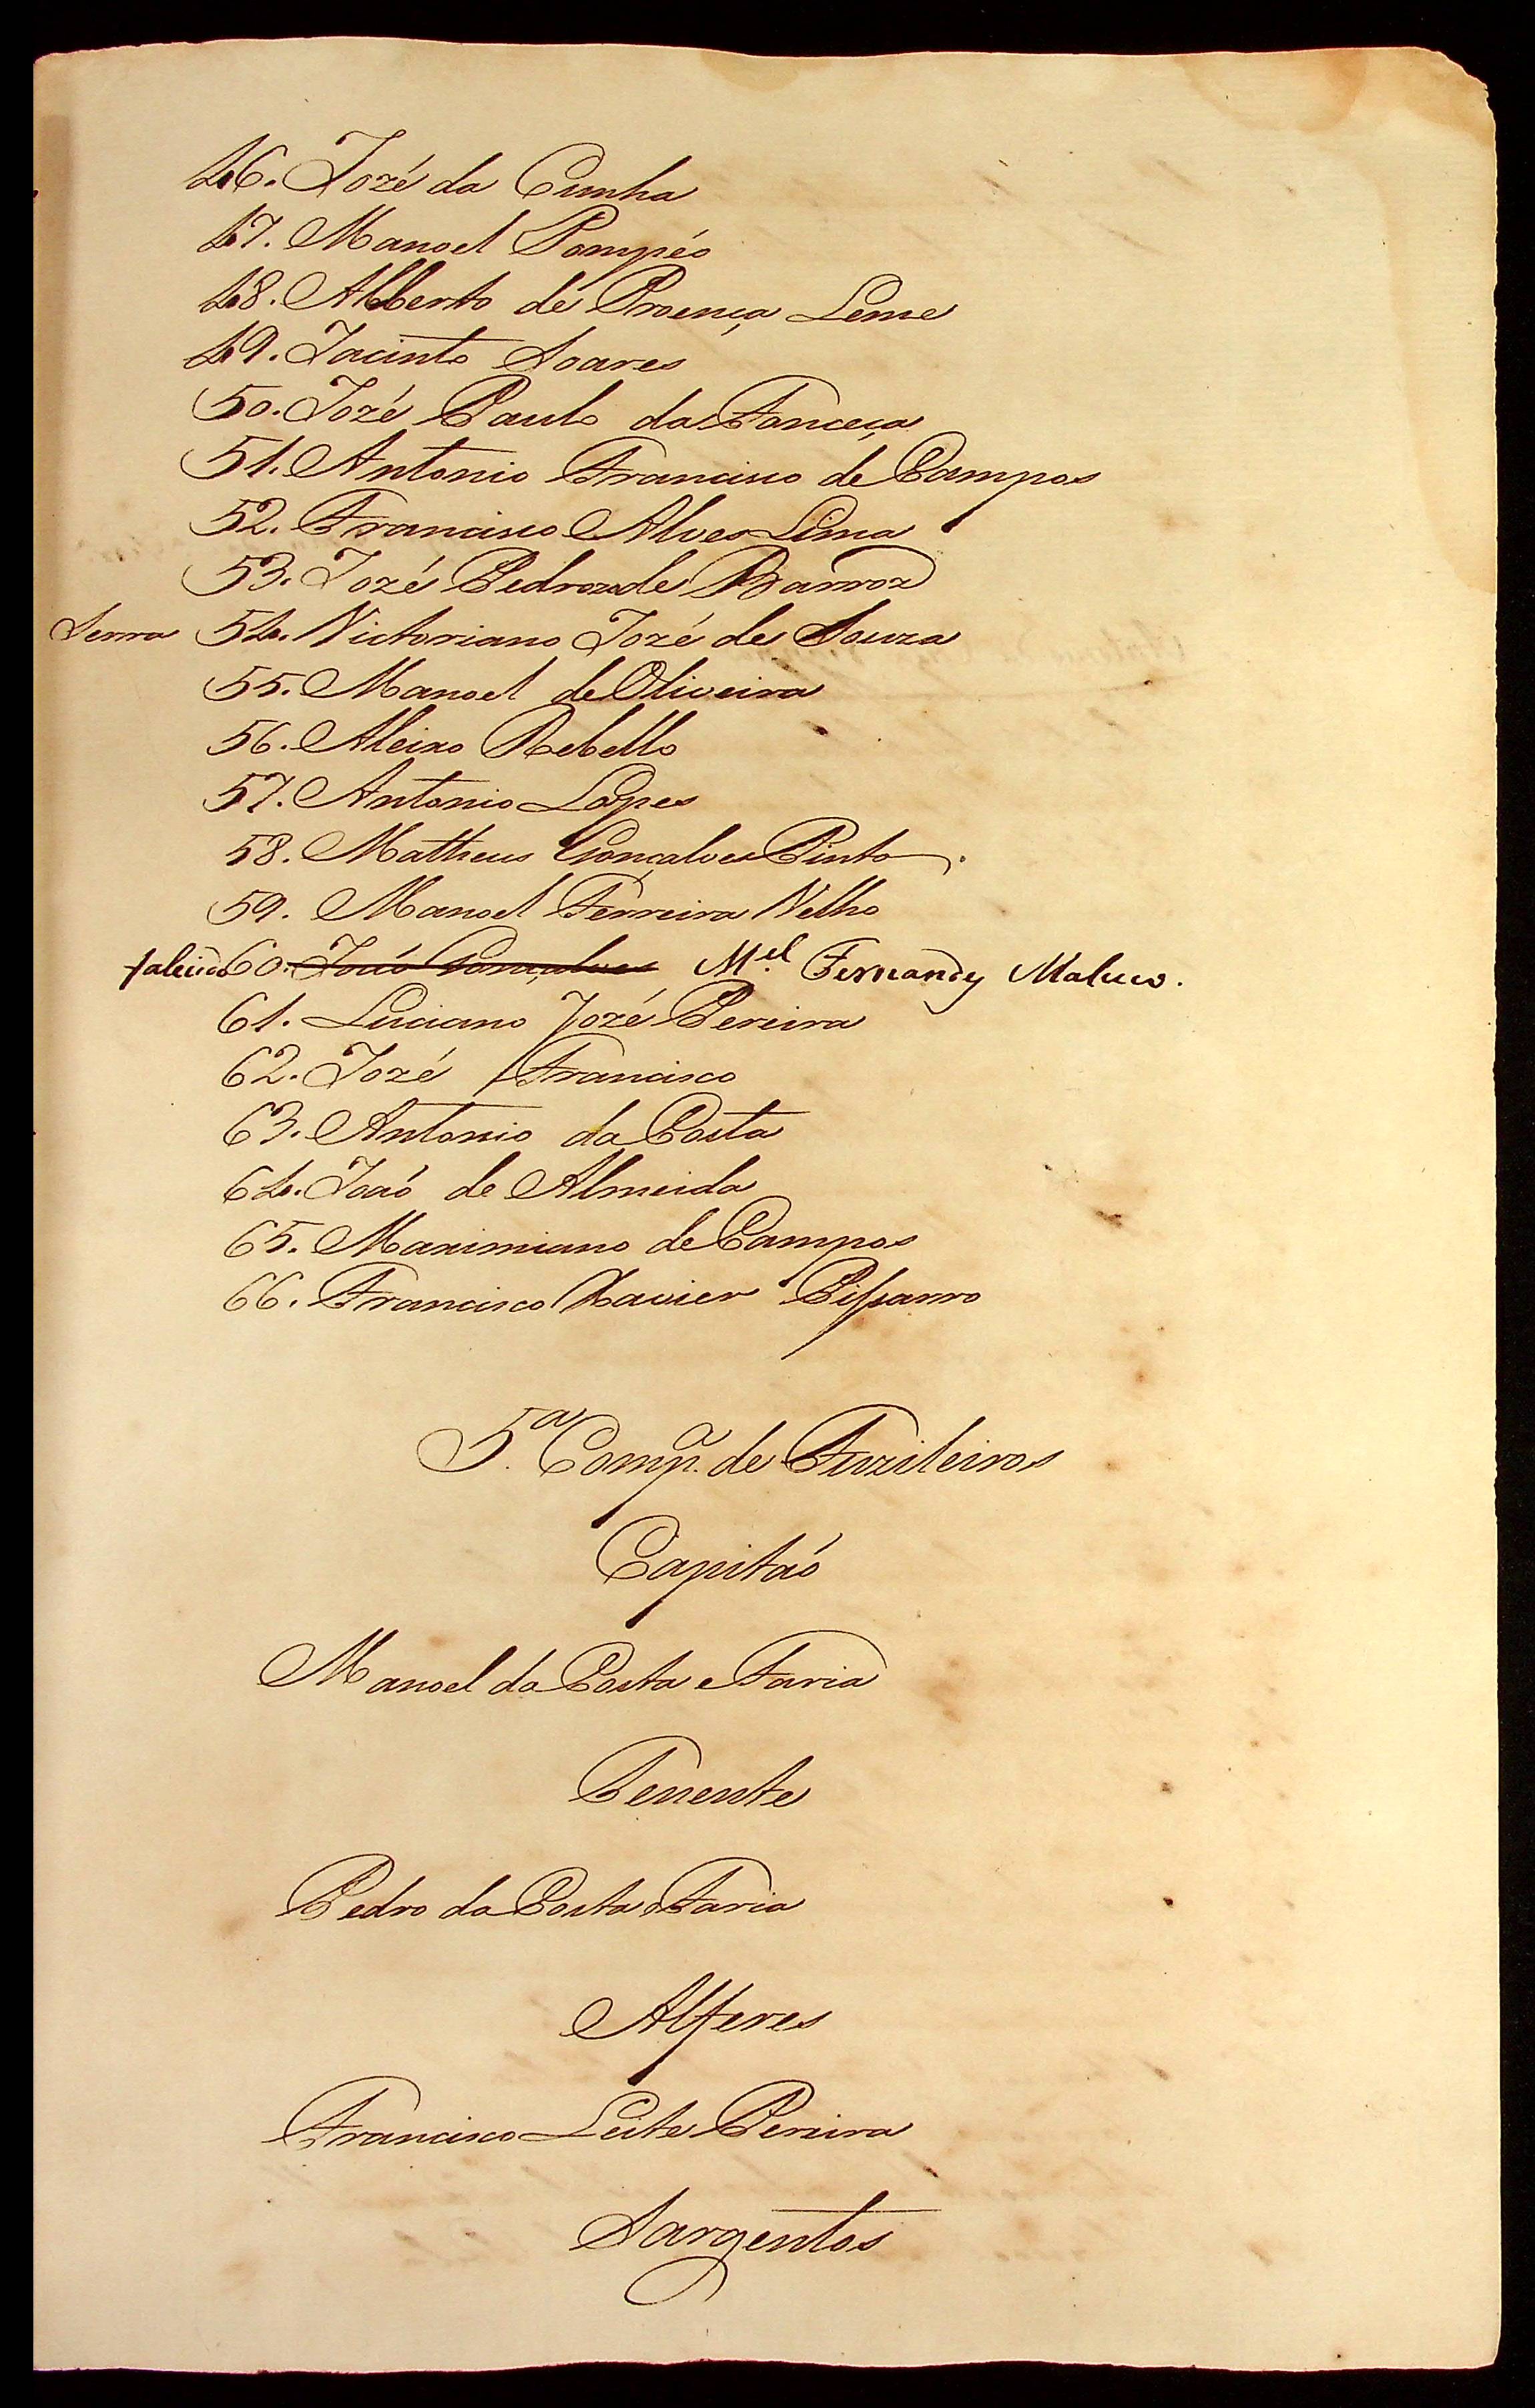 46. Jozé da Cunha
47. Manoel Pompéo
48. Alberto de Proença Leme
49. Jacinto Soares
50. Jozé Paulo da Fonceca
51. Antonio Francisco de Campos
52. Francisco Alves Lima
53. Jozé Pedrozo de Barros
Serra 54. Victoriano Jozé de Souza
55. Manoel de Oliveira
56. Aleixo Rebello
57. Antonio Lopes
58. Matheus Gonçalves Pinto.
59. Manoel Ferreira Velho
falecido 60. João Gonçalves Mel. Fernandes
61. Luciano Jozé Pereira
62. Jozé Francisco
63. Antonio da Costa
64. Joaó de Almeida
65. Maximiano de Campos
66. Francisco Xavier Pissarro
5.ª Comp.ª de Fuzileiros
Capitaó
Manoel da Costa e Faria
Tenente
Pedro da Costa Faria
Alferes
Francisco Leite Pereira
Sargentos